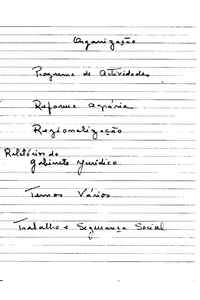 Organização
Programa de Actividades
Reforma Agrária
Regionalização
Relatórios do
Gabinete Jurídico
Temas Vários
Trabalho e Segurança Social